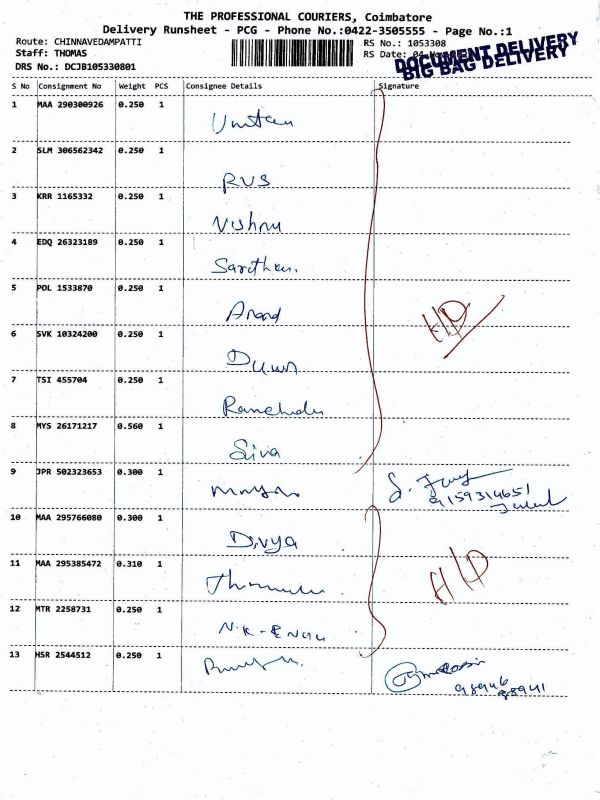 THE PROFESSIONAL COURIERS, Coimbatore
Delivery Runsheet - PCG - Phone No.:0422-3505555 - Page No.:1
Route: CHINNAVEDAMPATTI
RS No.: 1053308
Staff: THOMAS
RS Date: 04
DOCUMENT DELIVERY
BIG BAG DELIVERY
DRS No.: DCJB105330801
S No Consignment No Weight PCS Consignee Details Signature
1 MAA 290300926 0.250 1
2 SLM 306562342 0.250 1
RVS
3 KRR 1165332 0.250 1
Vishnu
4 EDQ 26323189 0.250 1
5 POL 1533870 0.250 1
Anand
6 SVK 10324200 0.250 1
7 TSI 455704 0.250 1
8 MYS 26171217 0.560 1
Siva
9 JPR 502323653 0.300 1
9159314651
10 MAA 295766080 0.300 1
Divya
11 MAA 295385472 0.310 1
12 MTR 2258731 0.250 1
13 HSR 2544512 0.250 1
98946
88941